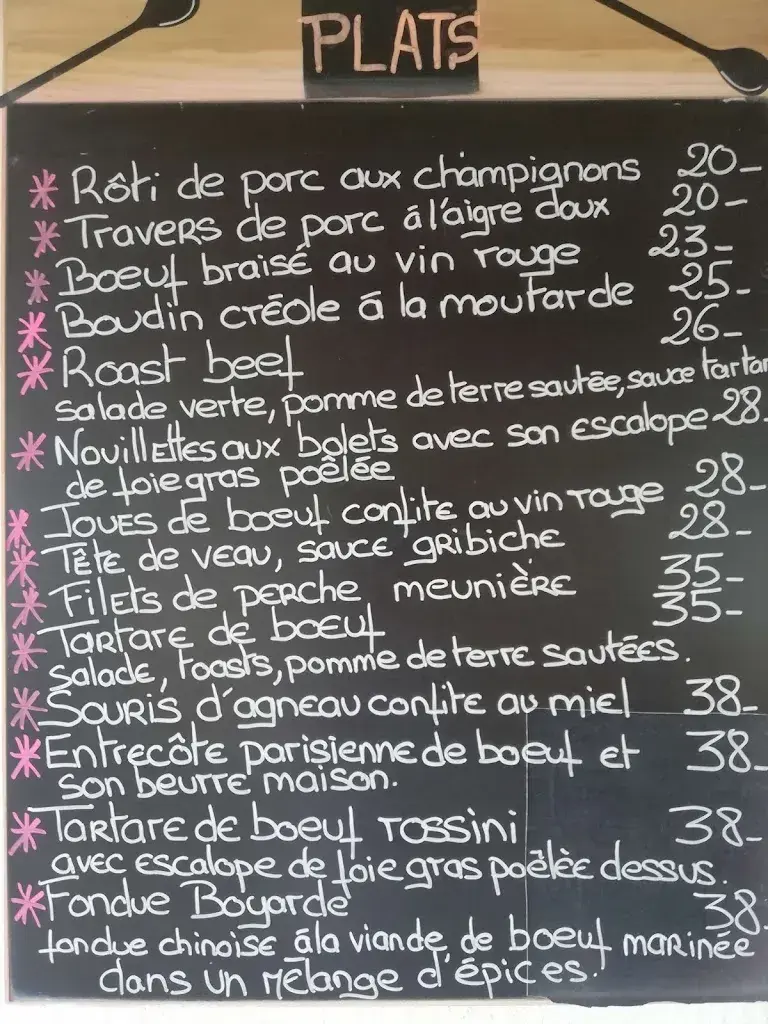 PLATS
* Rôti de porc aux champignons 20-
* Travers de porc á l'aigre doux 20-
* Boeuf braisé au vin rouge 23-
* Boudin créole á la moutarde 25-
* Roast beef 26-
salade verte, pomme de terre sautée, sauce tartar
* Nouillettes aux bolets avec son escalope 28-
de foie gras poêlée
* Joues de boeuf confite au vin rouge 28-
* Tête de veau, sauce gribiche 28-
* Filets de perche meunière 35-
* Tartare de boeuf 35-
salade, toasts, pomme de terre sautées.
* Souris d'agneau confite au miel 38-
* Entrecôte parisienne de boeuf et 38-
son beurre maison.
* Tartare de boeuf rossini 38-
avec escalope de foie gras poêlèe dessus.
* Fondue Boyarde 38-
fondue chinoise á la viande de boeuf marinée
dans un mélange d'épices.